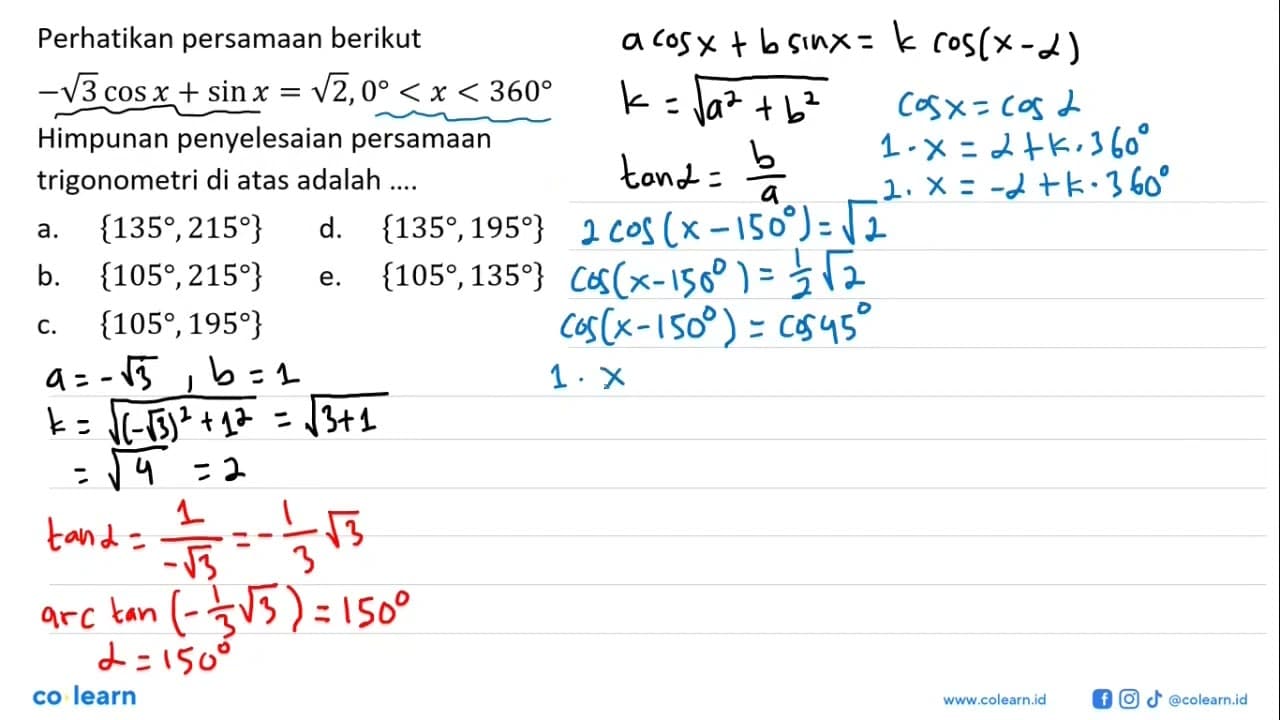 Perhatikan persamaan berikut
-√3 cos x + sin x = √2, 0° < x < 360°
Himpunan penyelesaian persamaan
trigonometri di atas adalah ....
a. {135°, 215°} d. {135°, 195°}
b. {105°, 215°} e. {105°, 135°}
c. {105°, 195°}
a = -√3 , b = 1
k = √((-√3)² + 1²) = √(3+1)
= √4 = 2
tan α = 1/(-√3) = -1/3 √3
arc tan (-1/3 √3) = 150°
α = 150°
a cos x + b sin x = k cos(x - α)
k = √(a² + b²)
tan α = b/a
cos x = cos α
1. x = α + k. 360°
2. x = -α + k. 360°
2 cos(x - 150°) = √2
cos(x - 150°) = 1/2 √2
cos(x - 150°) = cos 45°
1. x
co learn
www.colearn.id @colearn.id